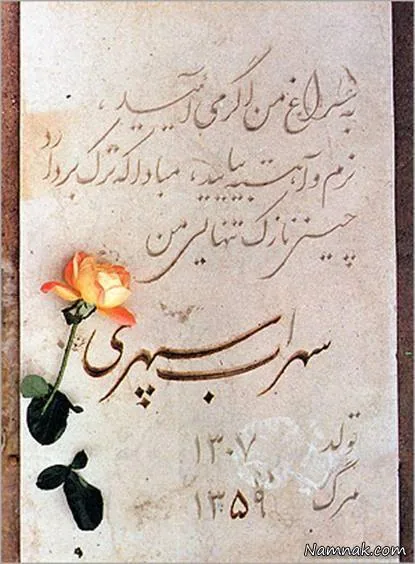 به سراغ من اگر می آئید،
نرم و آهسته بیایید، مبادا که ترک بردارد
چینی نازک تنهایی من
سهراب سپهری
تولد ۱۳۰۷
مرگ ۱۳۵۹
Namnak.com